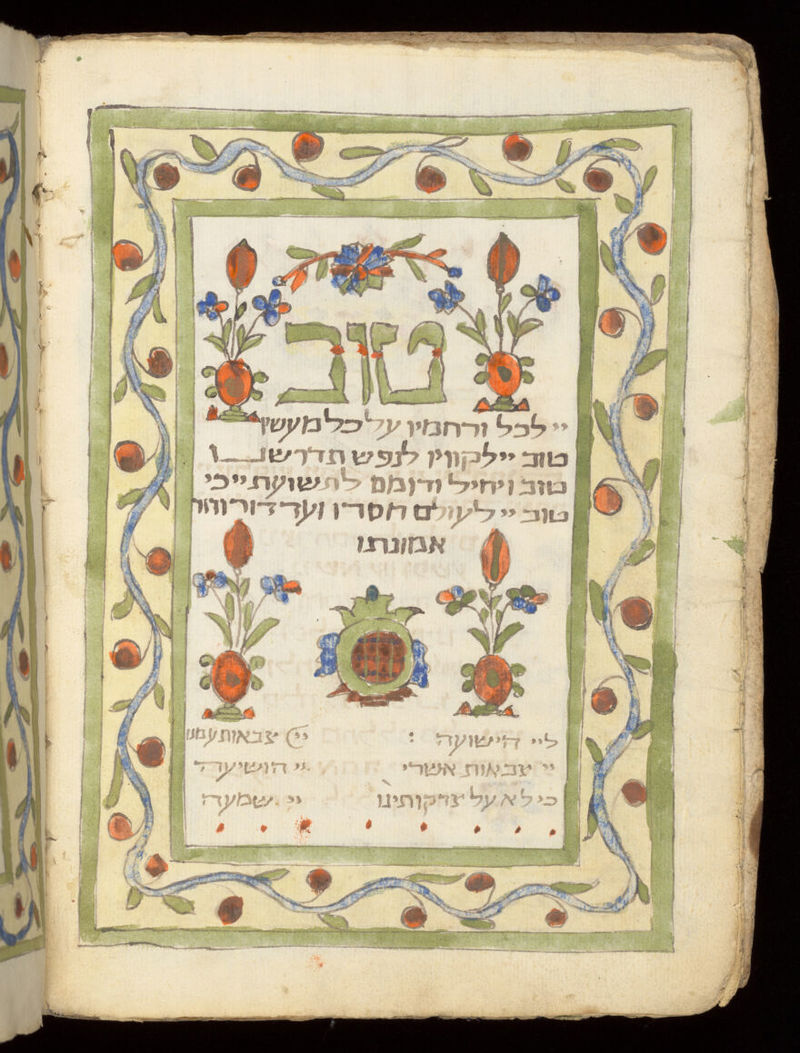 טוב
יי לכל ורחמיו על כל מעשיו
טוב יי לקוויו לנפש תדרשנו
טוב ויחיל ודומם לתשועת יי כי
טוב יי לעולם חסדו ועד דור ודור
אמונתו
ליי הישועה : יי צבאות עמנו
יי צבאות אשרי יי הושיעה
כי לא על צדקותינו יי שמעה